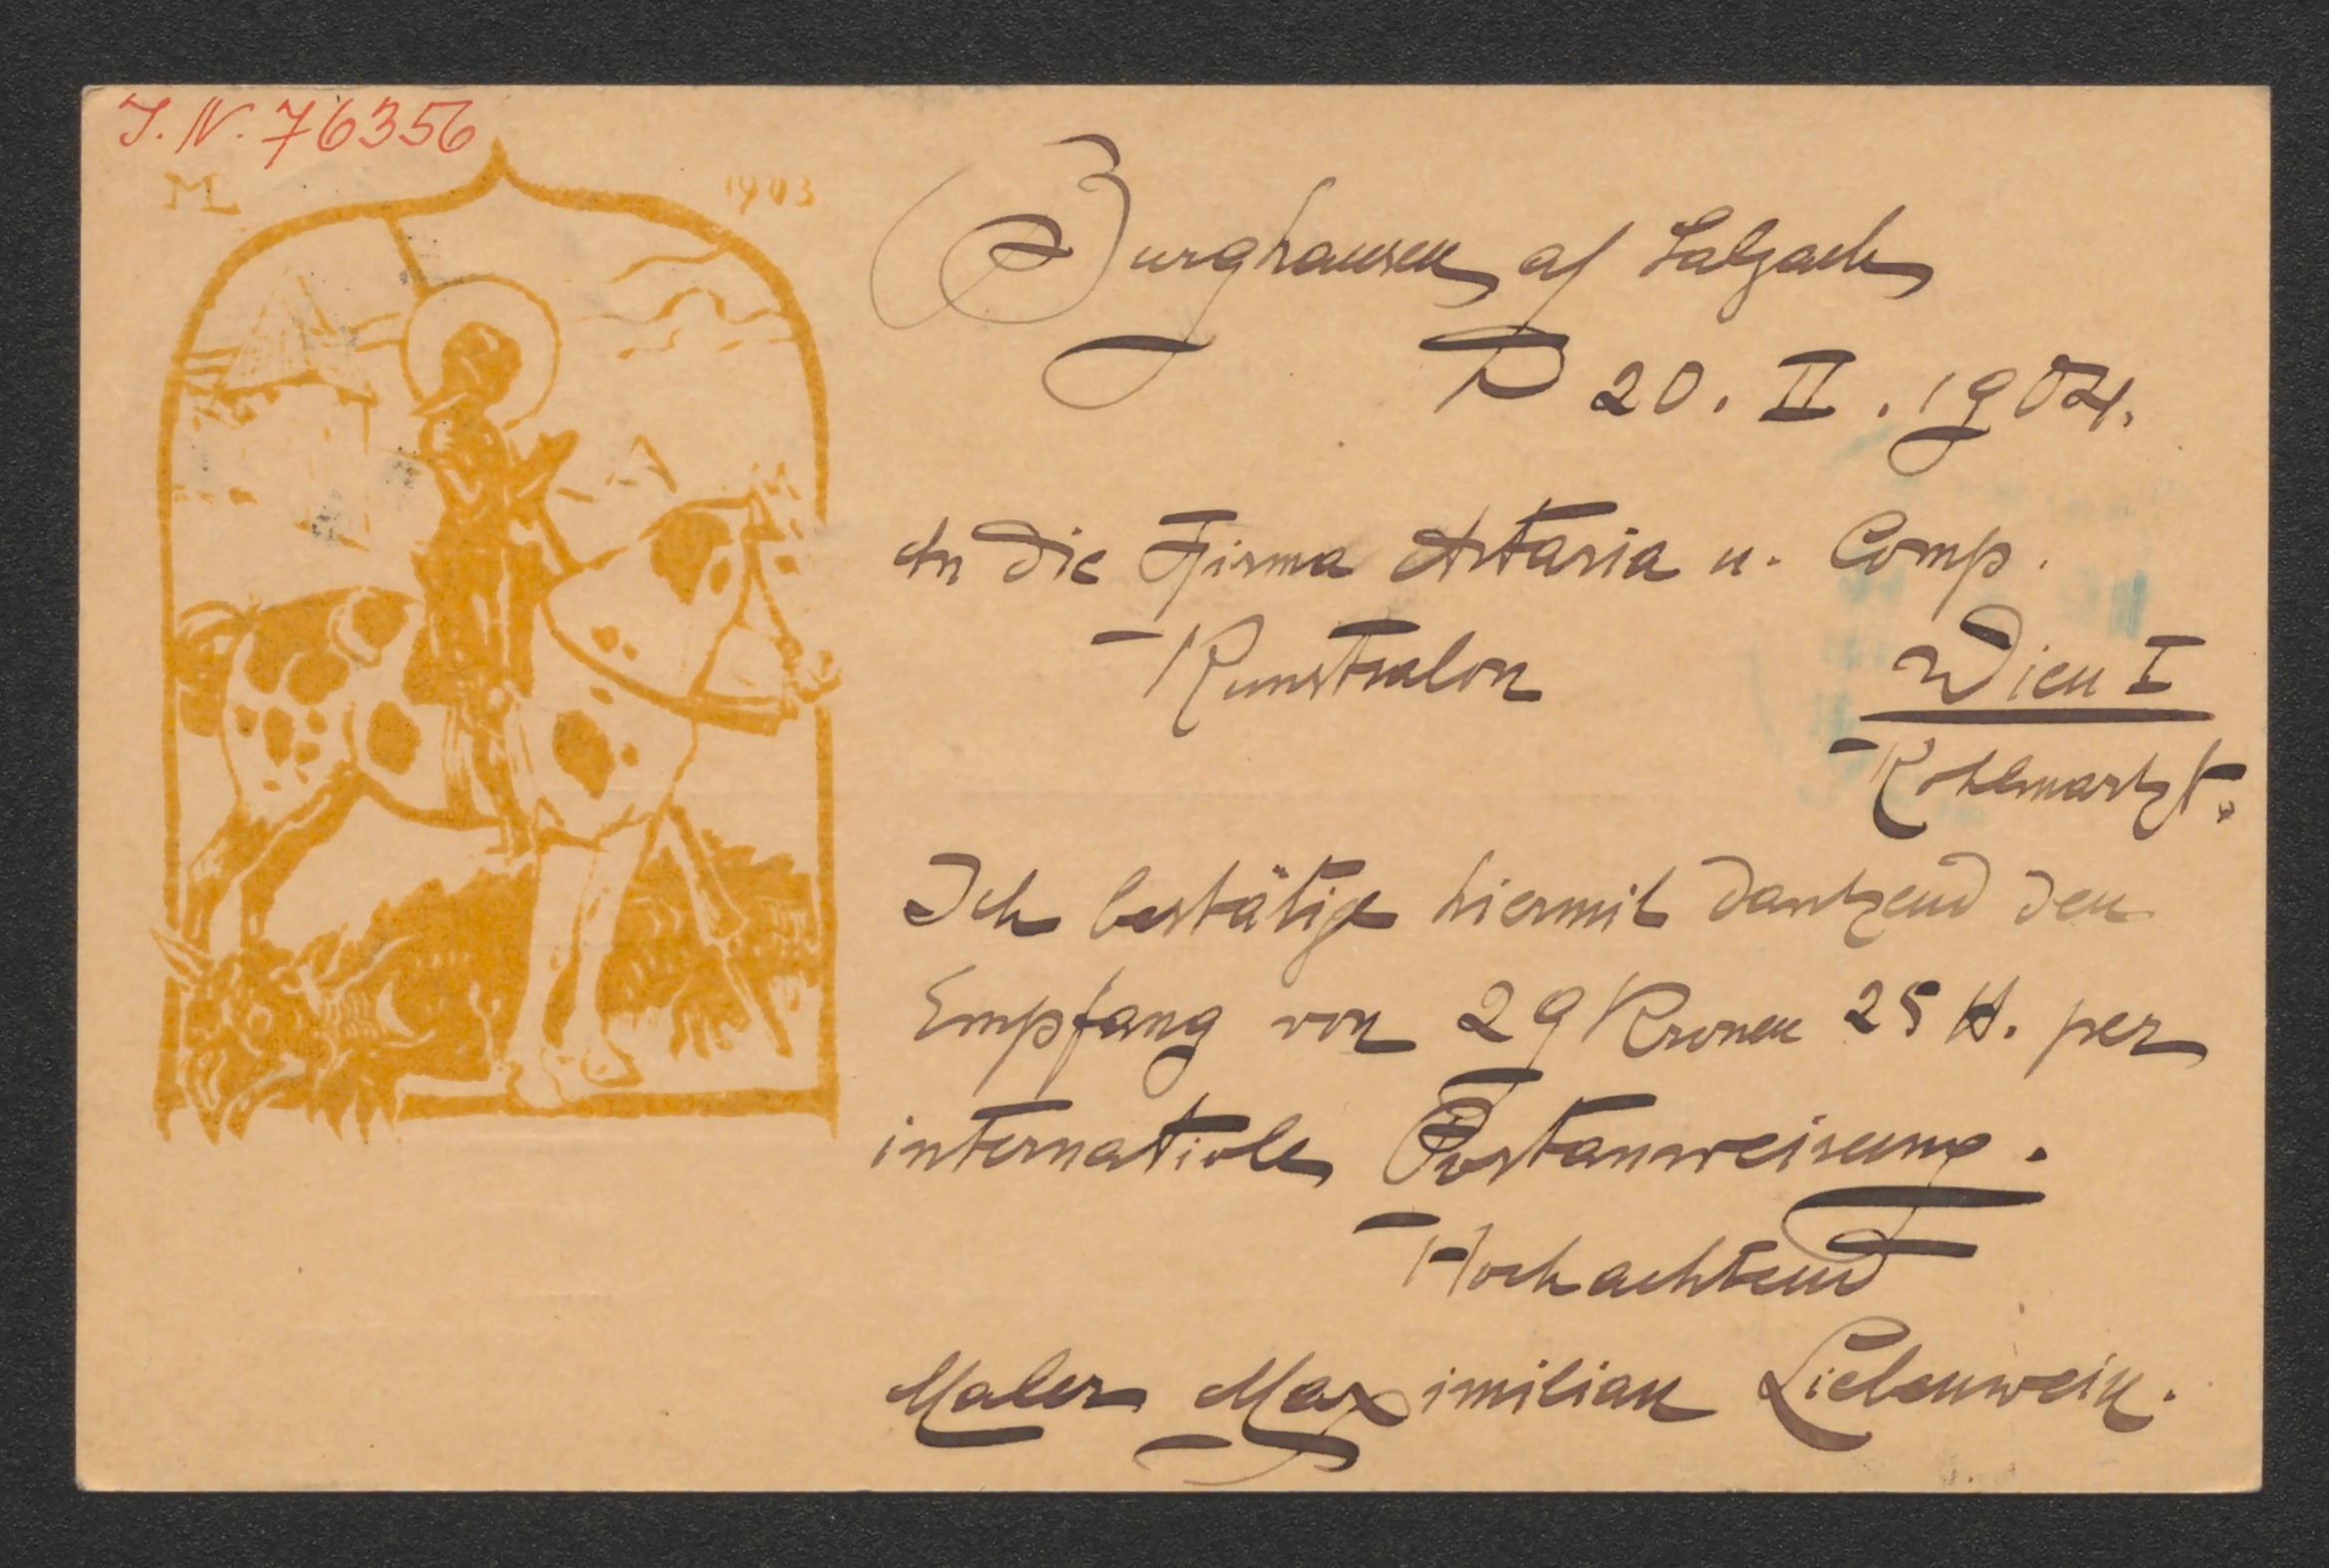 J. N. 76356
ML 1903
Burghausen a/ Salzach
D 20. II. 1904.
An die Firma Artaria u. Comp.
Kunstsalon Wien I
Kohlmarkt.
Ich bestätige hiermit dankend den
Empfang von 29 Kronen 25 H. per
internatiole Postanweisung.
Hochachtend
Maler Maximilian Liebenwein.